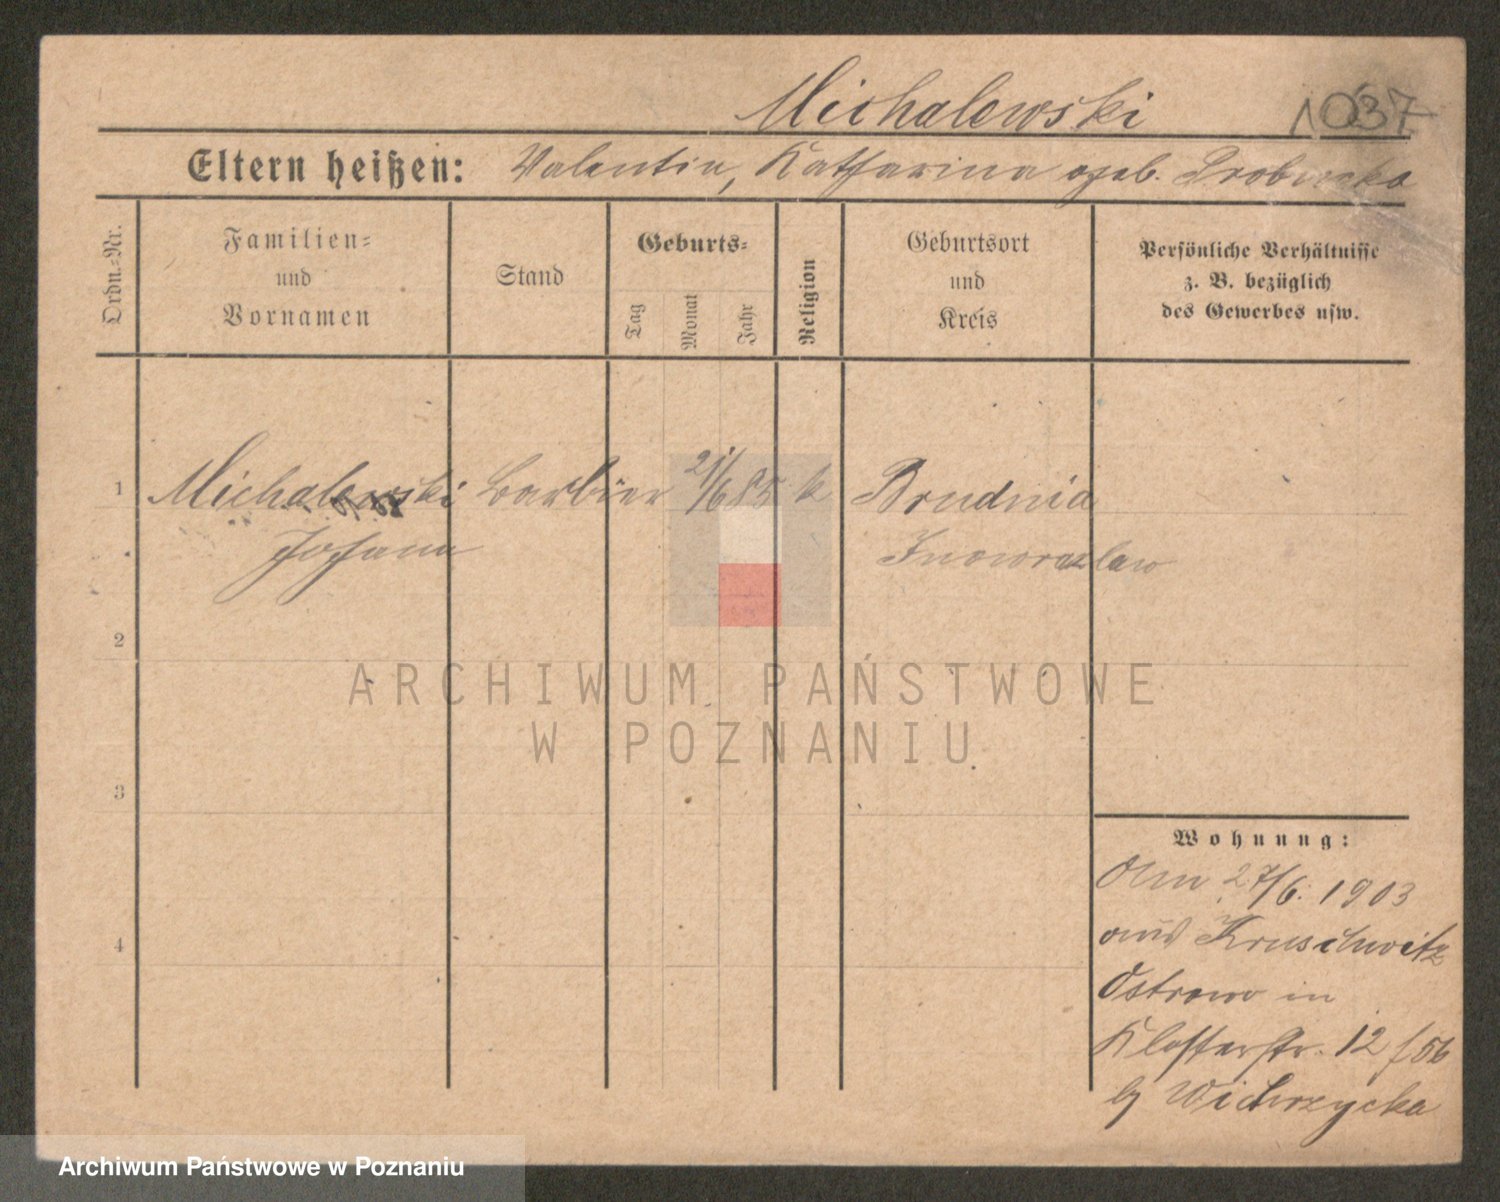 Michalewski
1037
Eltern heißen: Valentin, Katharina geb.
Ordn.-Nr.
Familien-
und
Vornamen
Stand
Geburts-
Tag
Monat
Jahr
Religion
Geburtsort
und
Kreis
Persönliche Verhältnisse
z. B. bezüglich
des Gewerbes usw.
1 Michalewski Barbier 21/6 85 k Brudnia
Johann Inowrazlaw
2
3
4
Wohnung:
Am 27/6. 1903
aus Kruschwitz
Ostrowo in
Klosterstr. 12
Wichrzycka
ARCHIWUM PAŃSTWOWE
W POZNANIU
Archiwum Państwowe w Poznaniu